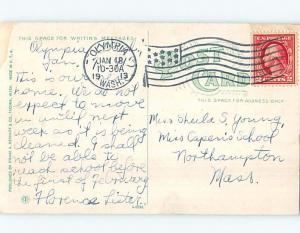 THIS SPACE FOR WRITING MESSAGES
Olympia
Jan. 17
This is our
home. We do not
expect to move
in until next
week as it is being
cleaned. I shall
not be able to
reach school before
the first of February
Florence Lister
OLYMPIA
JAN 18
10-30A
1913
WASH.
POST CARD
THIS SPACE FOR ADDRESS ONLY
Miss Sheila S. Young,
Miss Capen's School
Northampton
Mass.